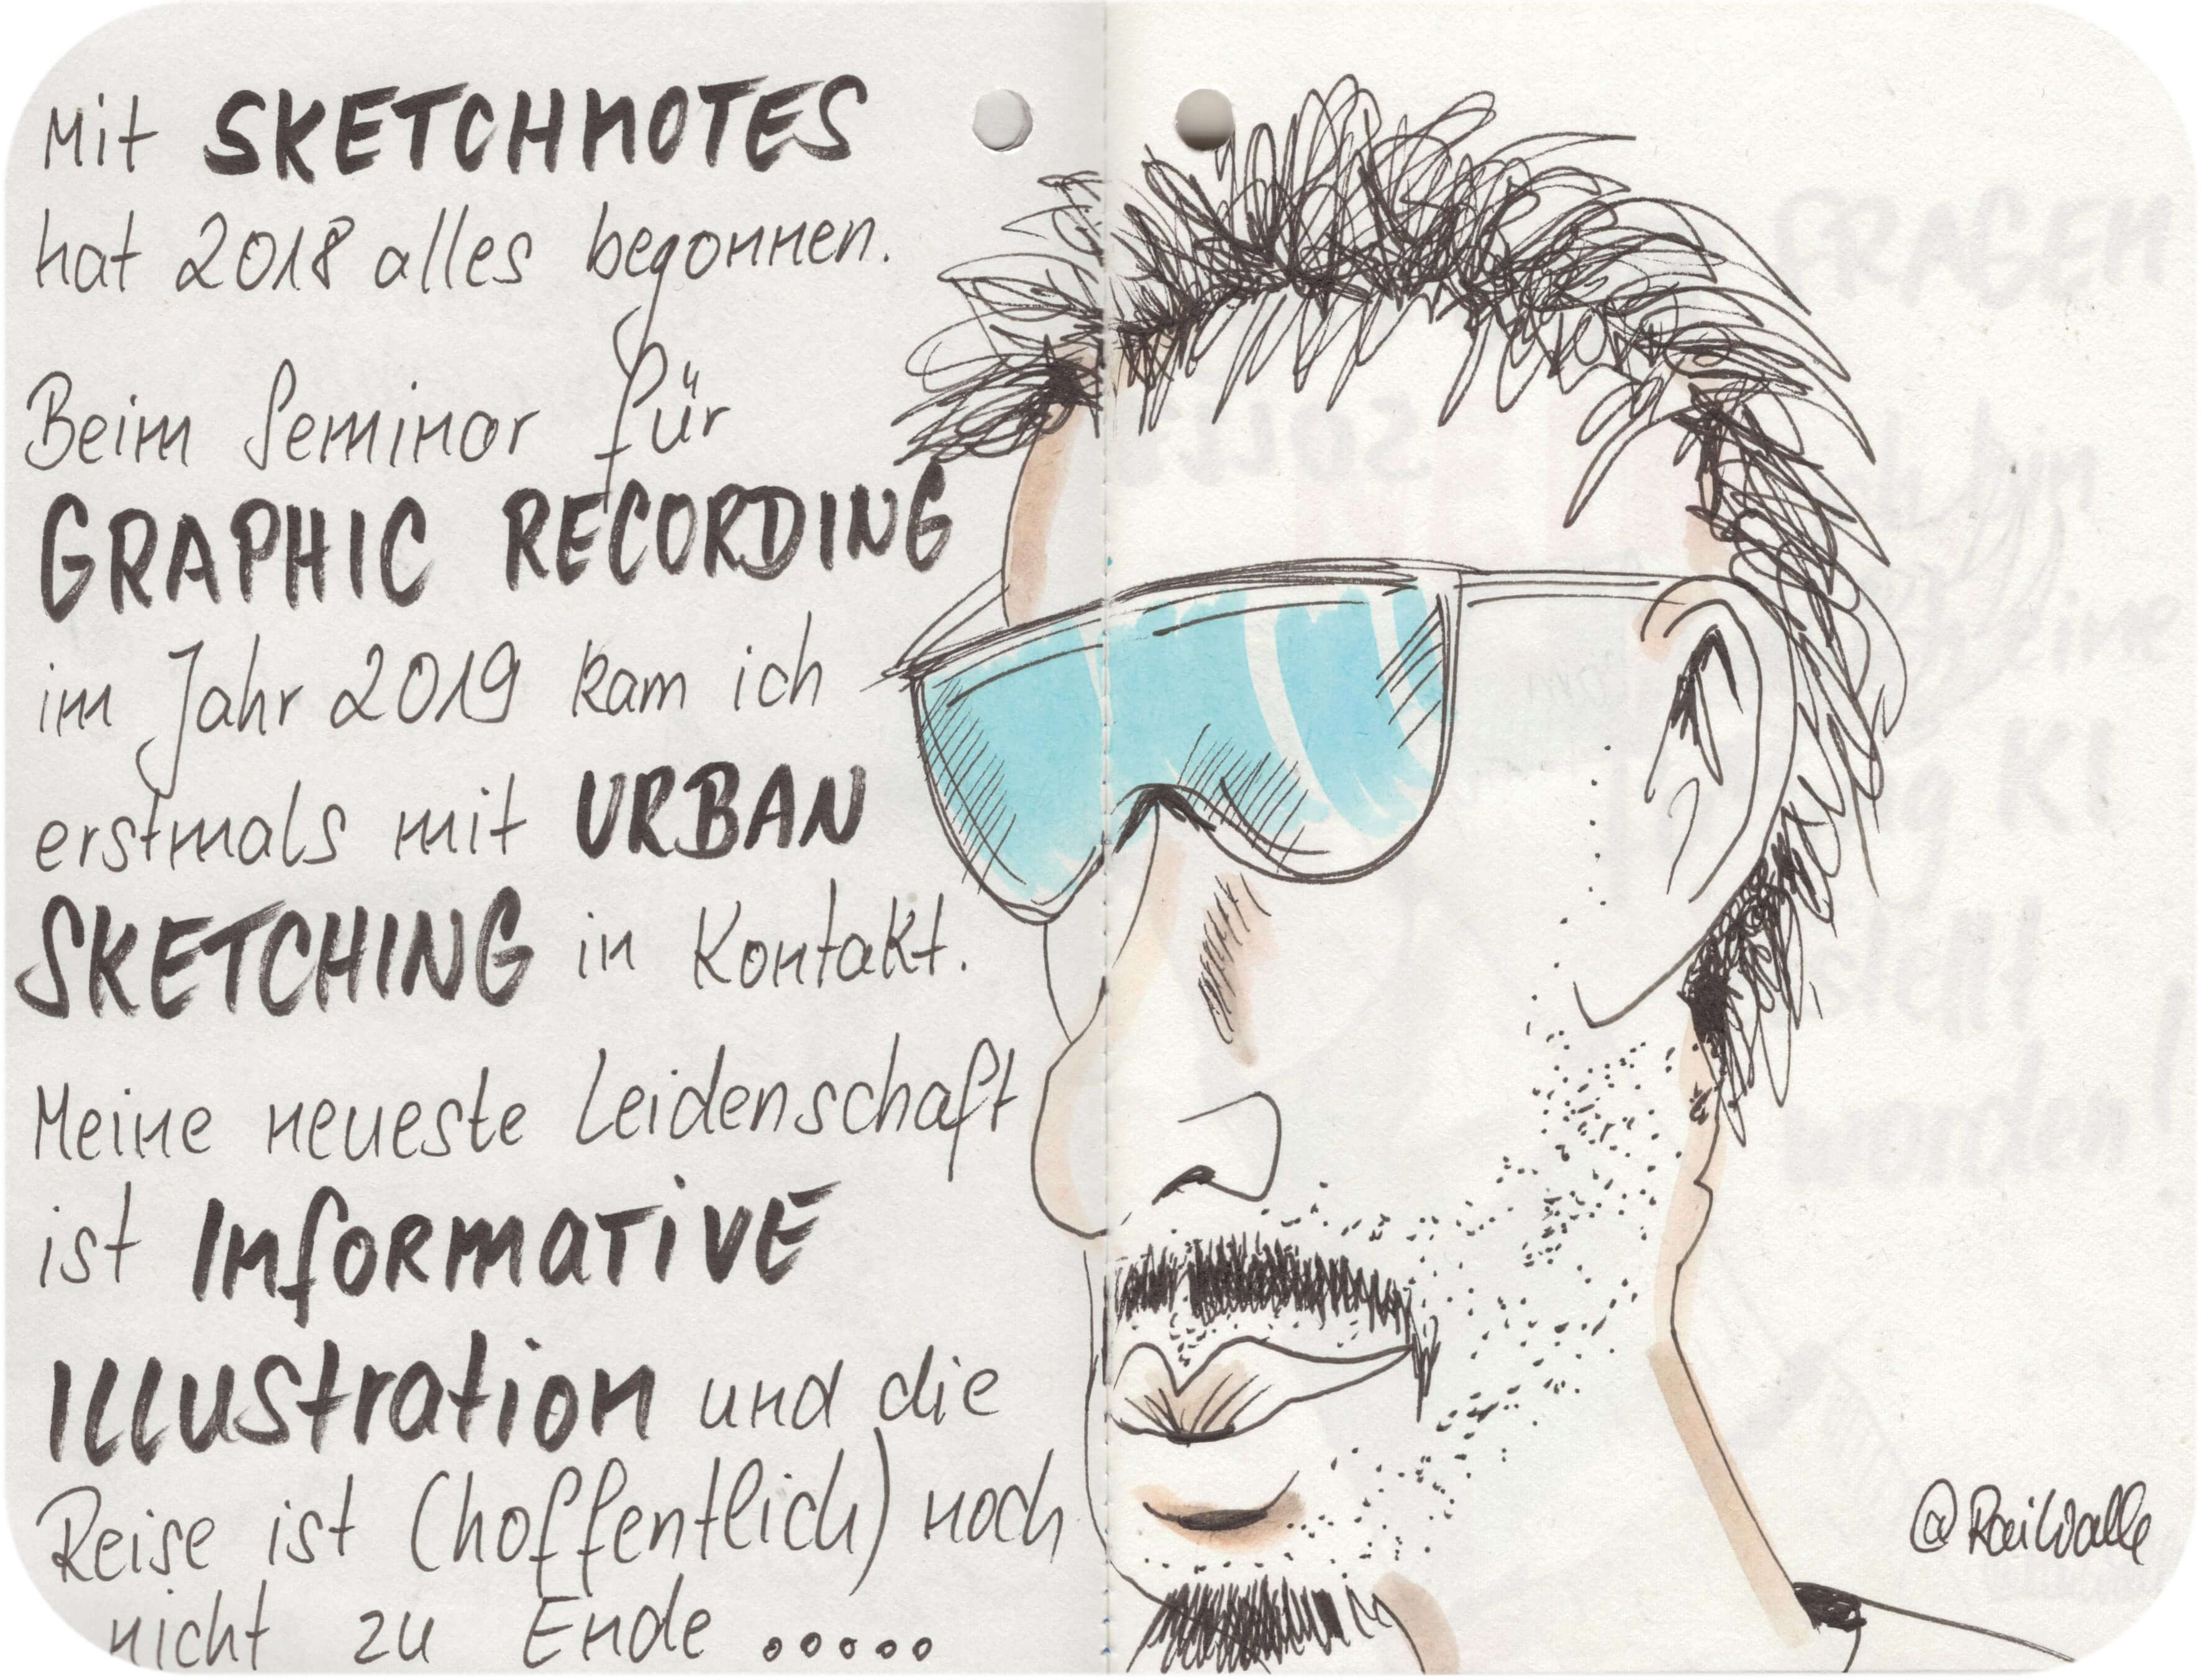 Mit SKETCHNOTES
hat 2018 alles begonnen.
Beim Seminar für
GRAPHIC RECORDING
im Jahr 2019 kam ich
erstmals mit URBAN
SKETCHING in Kontakt.
Meine neueste Leidenschaft
ist INfORMATIVE
ILLUStration und die
Reise ist (hoffentlich) noch
nicht zu Ende .....
@RaiWalle